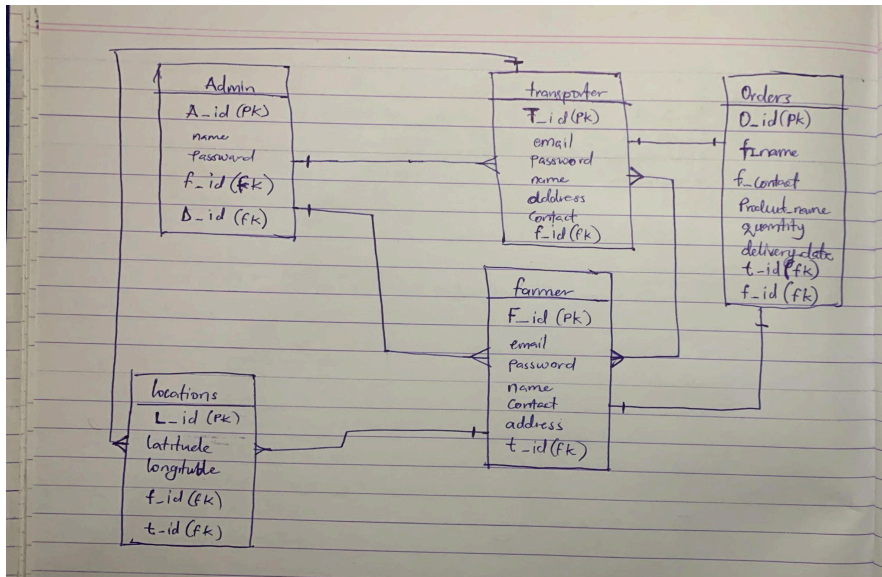 Admin
A_id (PK)
name
Password
f_id (fk)
D_id (fk)
transporter
T_id (PK)
email
Password
name
address
Contact
f_id (fk)
Orders
O_id (PK)
name
f_contact
Product_name
quantity
delivery_date
t_id (fk)
f_id (fk)
farmer
F_id (PK)
email
Password
name
Contact
address
t_id (fk)
locations
L_id (PK)
latitude
f_id (fk)
t_id (fk)